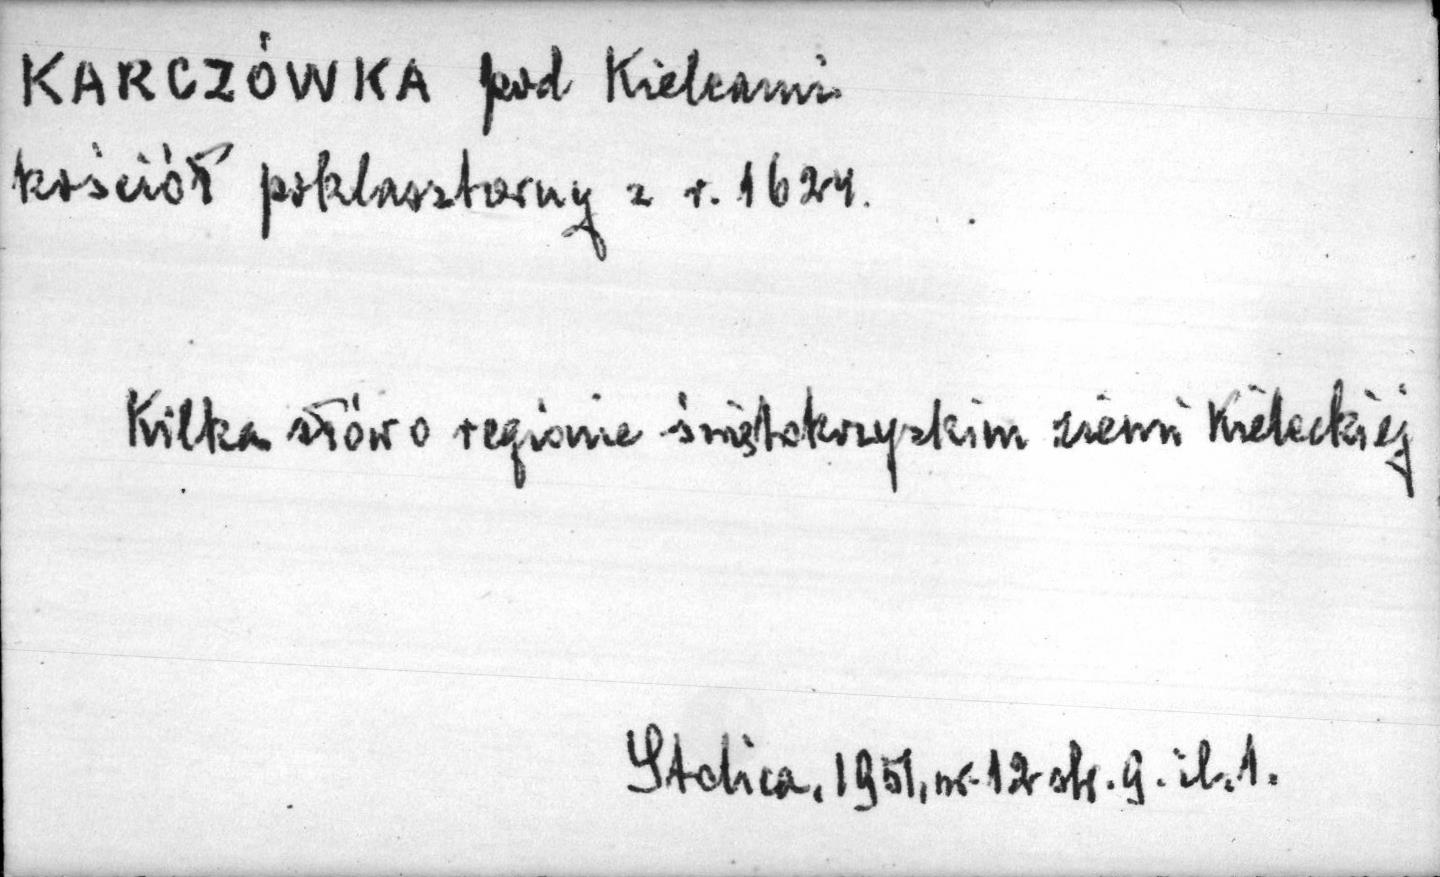 KARCZÓWKA pod Kielcami
kościół poklasztorny z r. 1624.
Kilka słów o regionie świętokrzyskim ziemi Kieleckiej
Stolica, 1951, nr. 12 str. 9. il. 1.